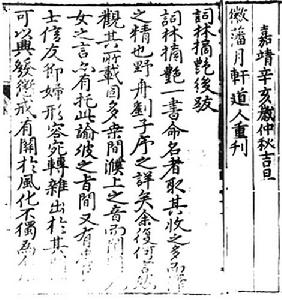 嘉靖辛亥歲仲秋吉旦
徽藩月軒道人重刊
詞林摘艷後跋
詞林摘艷一書命名者取其收之多而
之精也野舟劉子序之詳矣余復何言
觀其所載固多桑間濮上之音而閨
女之言亦有托此諭彼之旨間又有
士信友仰婦形容宛轉雜出於其
可以興發懲戒有關於風化不獨爲